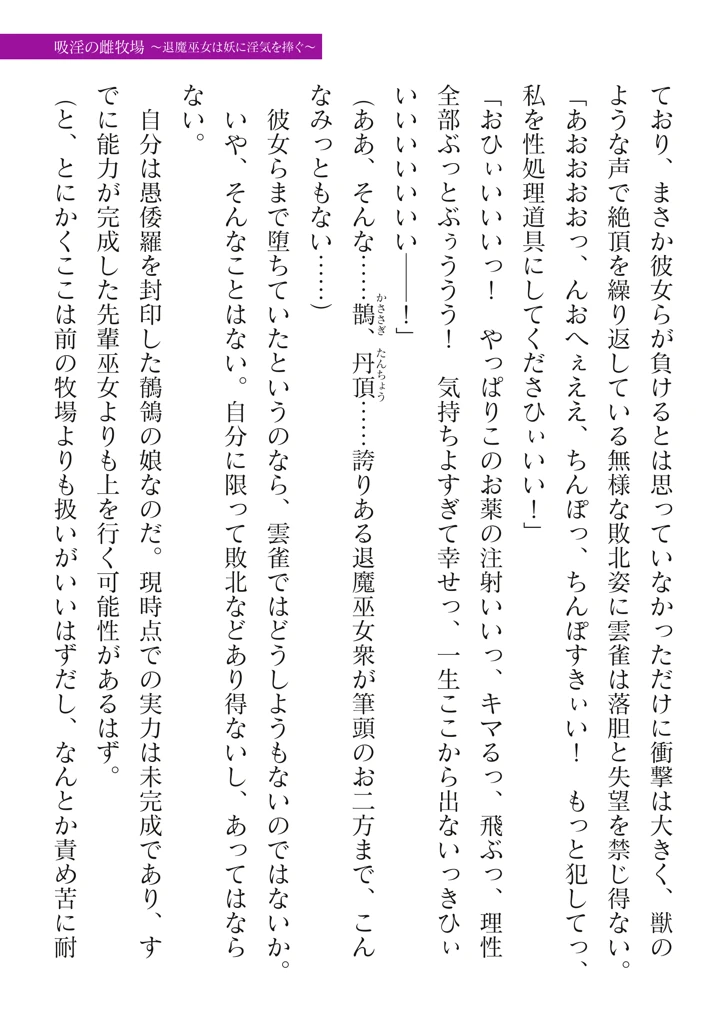 吸淫の雌牧場 ～退魔巫女は妖に淫気を捧ぐ～
ており、まさか彼女らが負けるとは思っていなかっただけに衝撃は大きく、獣の
ような声で絶頂を繰り返している無様な敗北姿に雲雀は落胆と失望を禁じ得ない。
「あおおおおっ、んおへぇええ、ちんぽっ、ちんぽすきぃい！　もっと犯してっ、
私を性処理道具にしてくださひぃいい！」
「おひぃいいいっ！　やっぱりこのお薬の注射いいっ、キマるっ、飛ぶっ、理性
全部ぶっとぶぅううう！　気持ちよすぎて幸せっ、一生ここから出ないっきひぃ
いいいいいいい――！」
（ああ、そんな……鵲、丹頂……誇りある退魔巫女衆が筆頭のお二方まで、こん
かささぎ　たんちょう
なみっともない……）
　彼女らまで堕ちていたというのなら、雲雀ではどうしようもないのではないか。
　いや、そんなことはない。自分に限って敗北などあり得ないし、あってはなら
ない。
　自分は愚倭羅を封印した鶺鴒の娘なのだ。現時点での実力は未完成であり、す
でに能力が完成した先輩巫女よりも上を行く可能性があるはず。
（と、とにかくここは前の牧場よりも扱いがいいはずだし、なんとか責め苦に耐